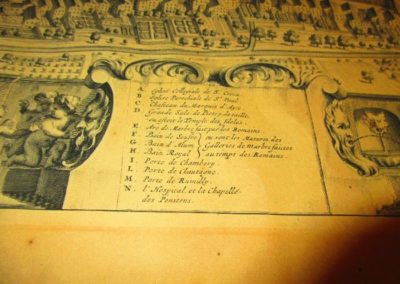 A. Eglise Collegiale de Ste Croix
B. Eglise Parochiale de St Paul
C. Chasteau du Marquis d'Ayx
D. Grande Sale de Pierre de taille,
ou estoit le Temple des Idoles.
E. Arc de Marbre fait par les Romains.
F. Bain de Soufre
G. Bain d'Alum
H. Bain Royal
ou sont les Masures des
Galleries de Marbre faittes
au temps des Romains.
I. Porte de Chambery
L. Porte de Chautagne
M. Porte de Rumilly.
N. l'Hospital, et la Chapelle
des Penitens.